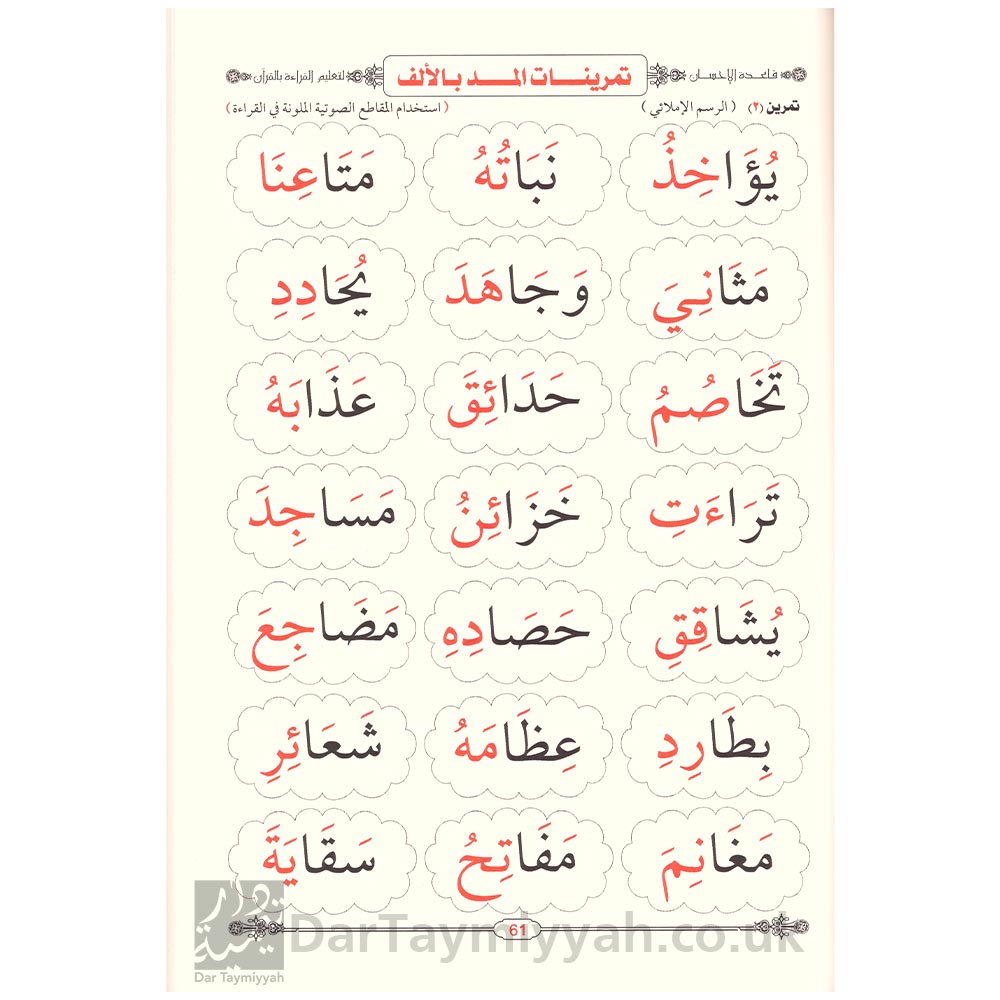 قاعدة الإحسان تمرينات المد بالألف لتعليم القراءة بالقرآن
تمرين (٢) (الرسم الإملائي) (استخدام المقاطع الصوتية الملونة في القراءة)
يُؤَاخِذُ نَبَاتُهُ مَتَاعِنَا
مَثَانِيَ وَجَاهَدَ يُحَادِدِ
تَخَاصُمُ حَدَائِقَ عَذَابَهُ
تَرَاءَتِ خَزَائِنُ مَسَاجِدَ
يُشَاقِقِ حَصَادِهِ مَضَاجِعَ
بِطَارِدِ عِظَامَهُ شَعَائِرِ
مَغَانِمَ مَفَاتِحُ سَقَايَةَ
61
DarTaymiyyah.co.uk
Dar Taymiyyah